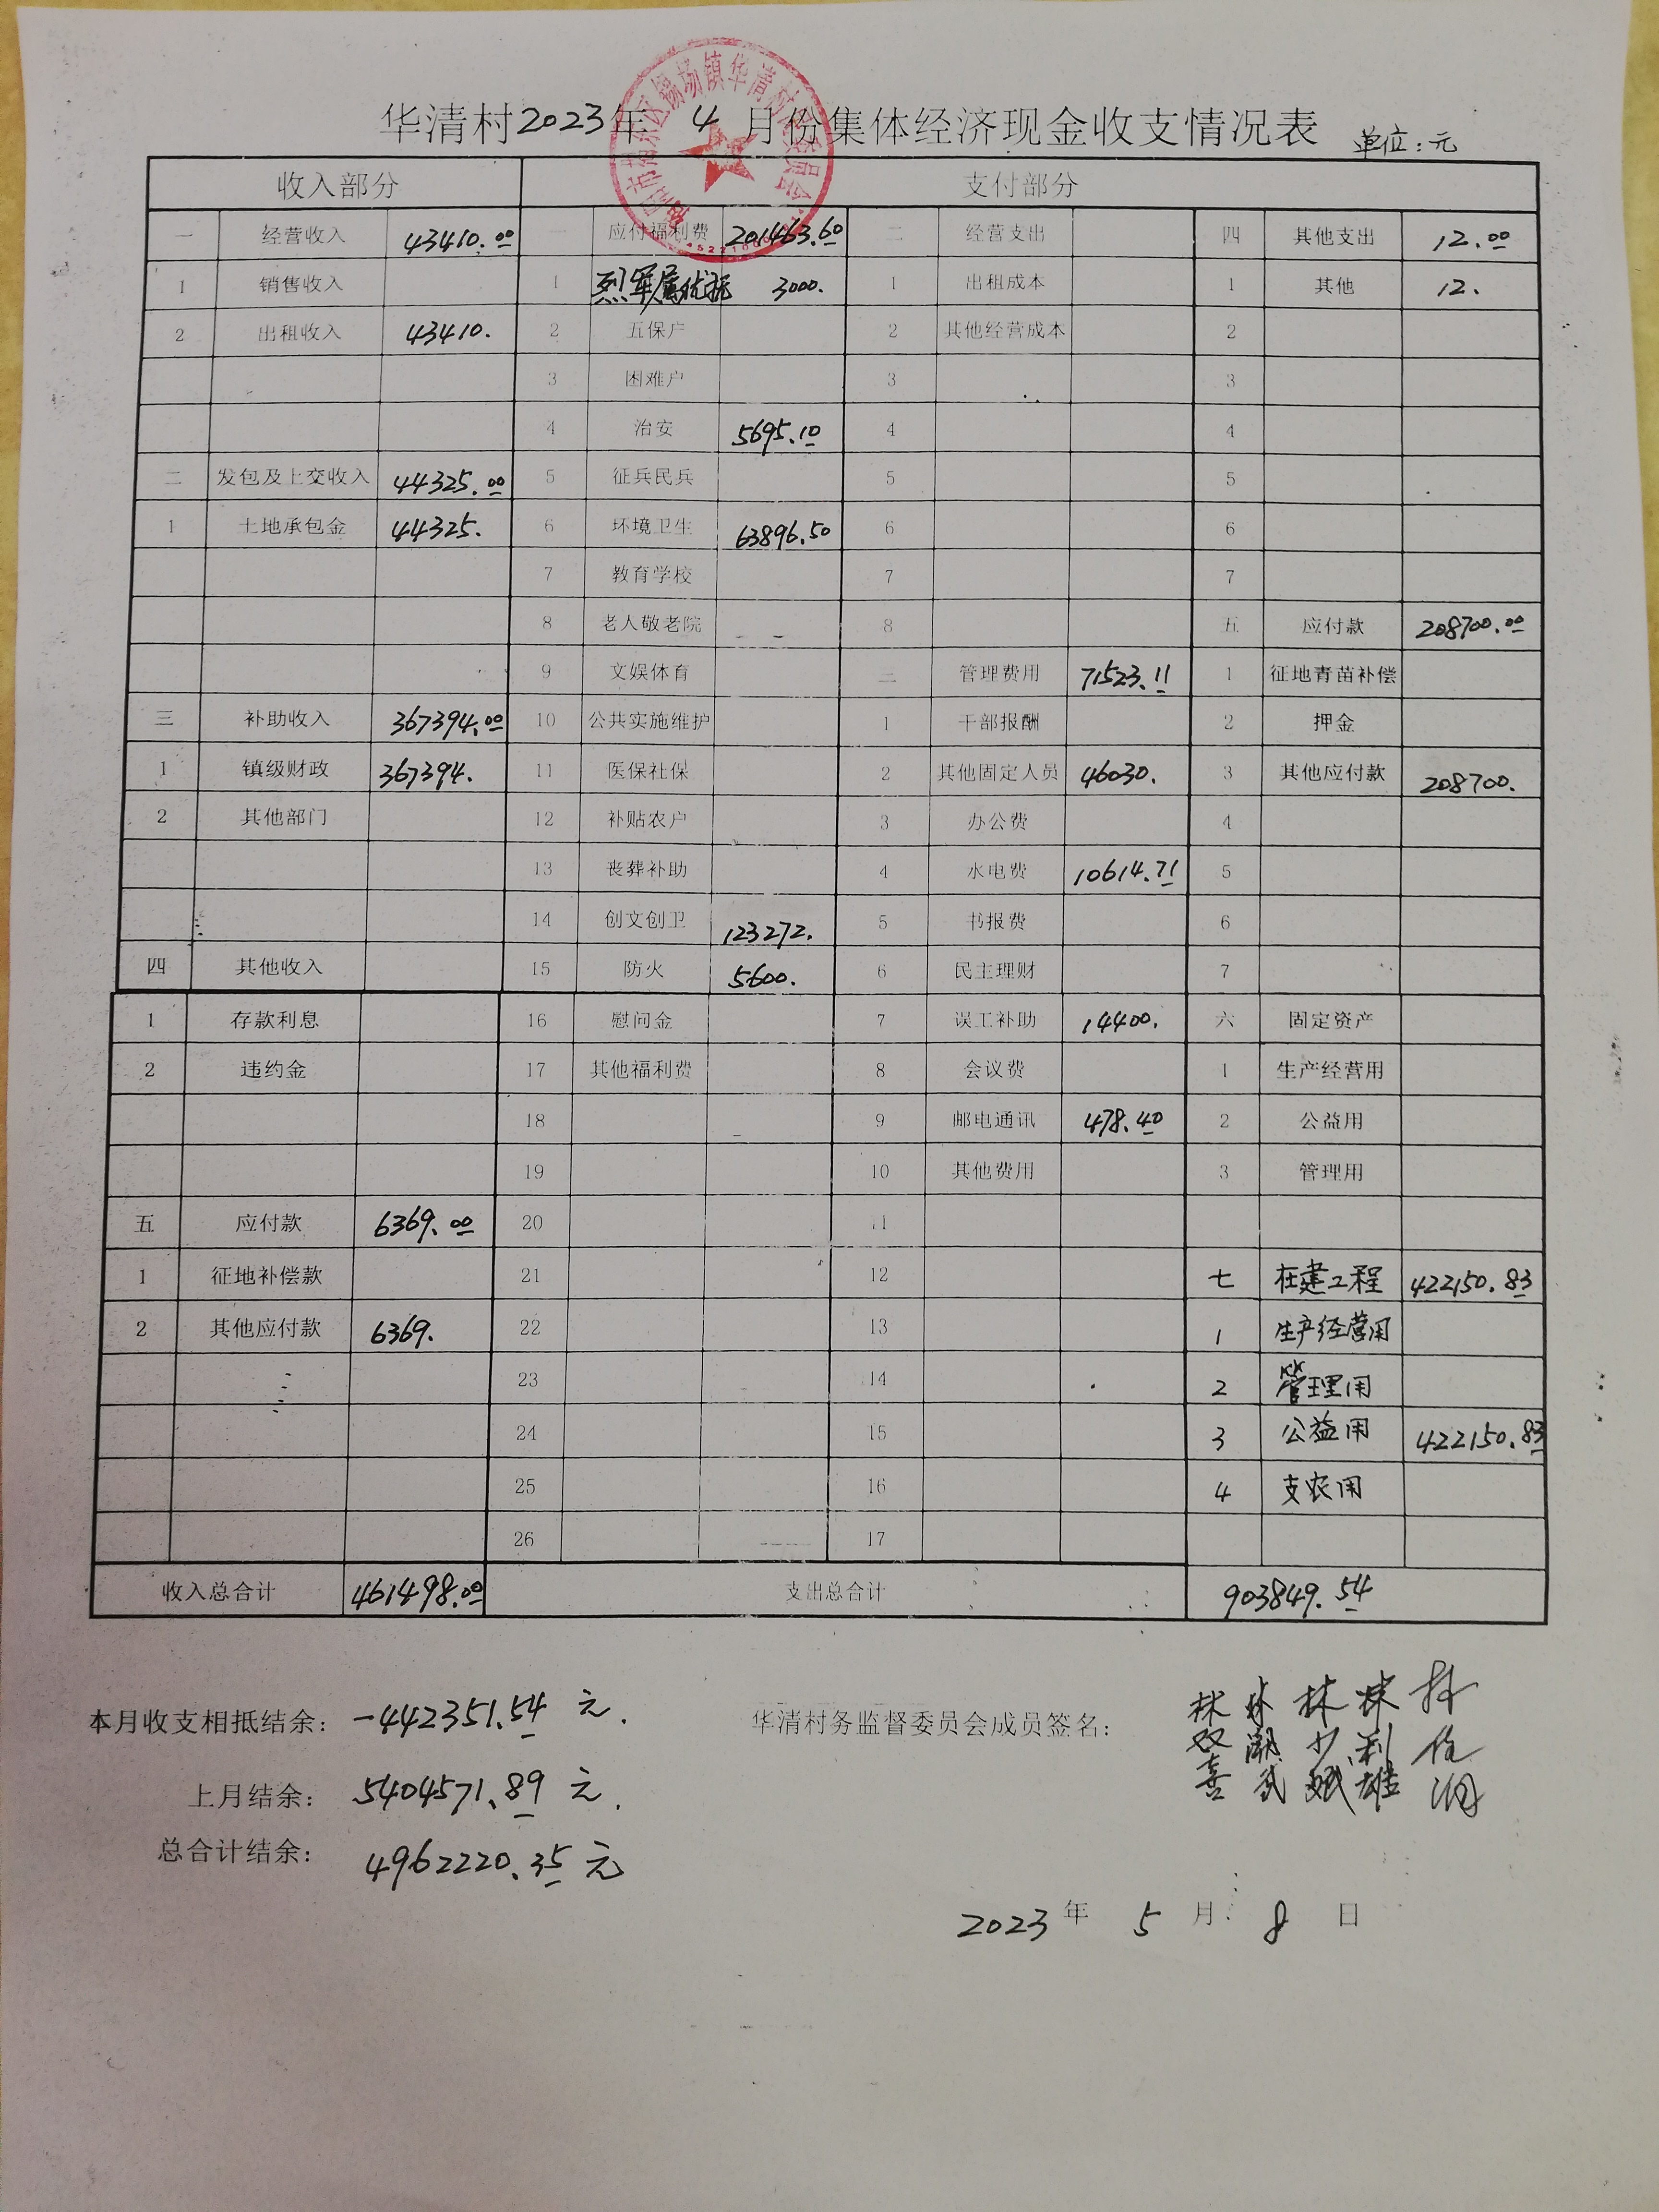 华清村2023年 4 月份集体经济现金收支情况表 单位:元
收入部分 支付部分
一 经营收入 43410.00 应付福利费 201463.60 二 经营支出 四 其他支出 12.00
1 销售收入 1 烈军属优抚 3000. 1 出租成本 1 其他 12.
2 出租收入 43410. 2 五保户 2 其他经营成本 2
3 困难户 3 3
4 治安 5695.10 4 4
二 发包及上交收入 44325.00 5 征兵民兵 5 5
1 土地承包金 44325. 6 环境卫生 63896.50 6 6
7 教育学校 7 7
8 老人敬老院 8 五 应付款 208700.00
9 文娱体育 三 管理费用 71523.11 1 征地青苗补偿
三 补助收入 367394.00 10 公共实施维护 1 干部报酬 2 押金
1 镇级财政 367394. 11 医保社保 2 其他固定人员 46030. 3 其他应付款 208700.
2 其他部门 12 补贴农户 3 办公费 4
13 丧葬补助 4 水电费 10614.71 5
14 创文创卫 123272. 5 书报费 6
四 其他收入 15 防火 5600. 6 民主理财 7
1 存款利息 16 慰问金 7 误工补助 14400. 六 固定资产
2 违约金 17 其他福利费 8 会议费 1 生产经营用
18 9 邮电通讯 478.40 2 公益用
19 10 其他费用 3 管理用
五 应付款 6369.00 20 11
1 征地补偿款 21 12 七 在建工程 422150.83
2 其他应付款 6369. 22 13 1 生产经营用
23 14 2 管理用
24 15 3 公益用 422150.83
25 16 4 支农用
26 17
收入总合计 461498.00 支出总合计 903849.54
本月收支相抵结余: -442351.54 元.
华清村务监督委员会成员签名: 林双喜 林少斌 林利雄
上月结余: 5404571.89 元.
总合计结余: 4962220.35 元
2023 年 5 月 8 日